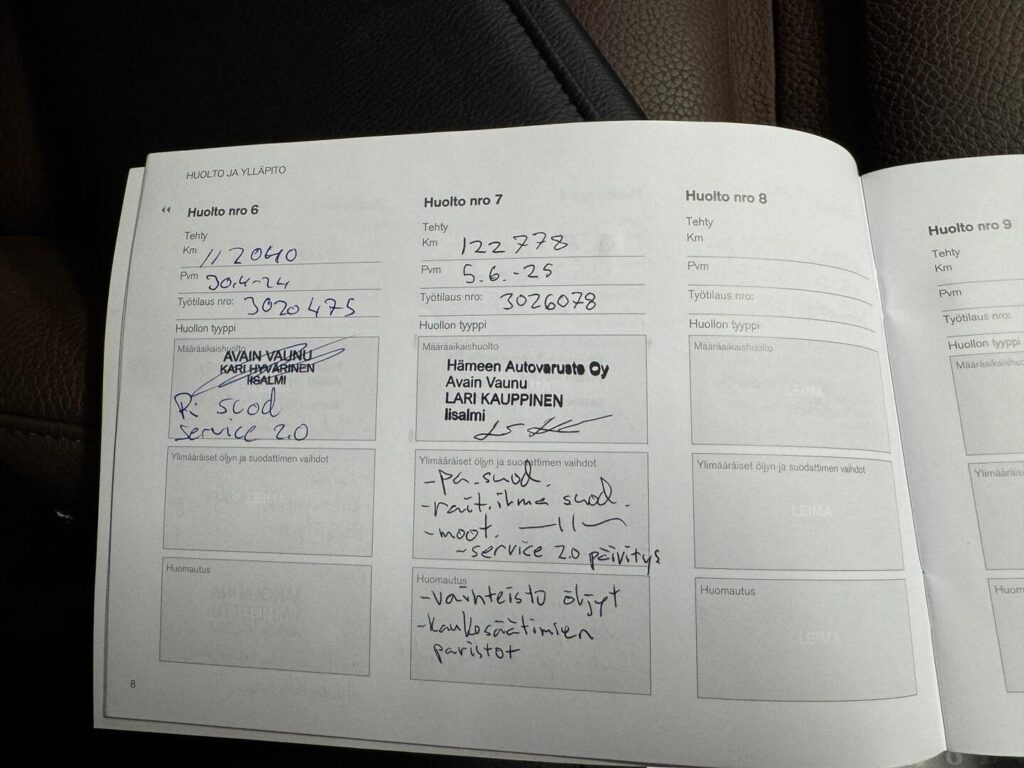 HUOLTO JA YLLÄPITO
Huolto nro 6
Tehty
Km 112040
Pvm 30.4-24
Työtilaus nro: 3020475
Huollon tyyppi
Määräaikaishuolto
AVAIN VAUNU
KARI HYVÄRINEN
IISALMI
suod
service 2.0
Ylimääräiset öljyn ja suodattimen vaihdot
Huomautus
8
Huolto nro 7
Tehty
Km 122778
Pvm 5.6.-25
Työtilaus nro: 3026078
Huollon tyyppi
Määräaikaishuolto
Hämeen Autovaruste Oy
Avain Vaunu
LARI KAUPPINEN
Iisalmi
Ylimääräiset öljyn ja suodattimen vaihdot
-pa.suod.
-rait.ilma suod.
-moot. —11—
-service 2.0 päivitys
Huomautus
-vaihteisto öljyt
-kaukosäätimien
paristot
Huolto nro 8
Tehty
Km
Pvm
Työtilaus nro:
Huollon tyyppi
Määräaikaishuolto
LEIMA
Ylimääräiset öljyn ja suodattimen vaihdot
LEIMA
Huomautus
LEIMA
Huolto nro 9
Tehty
Km
Pvm
Työtilaus nro:
Huollon tyyppi
Määräaikaishu
Ylimääräis
Huom